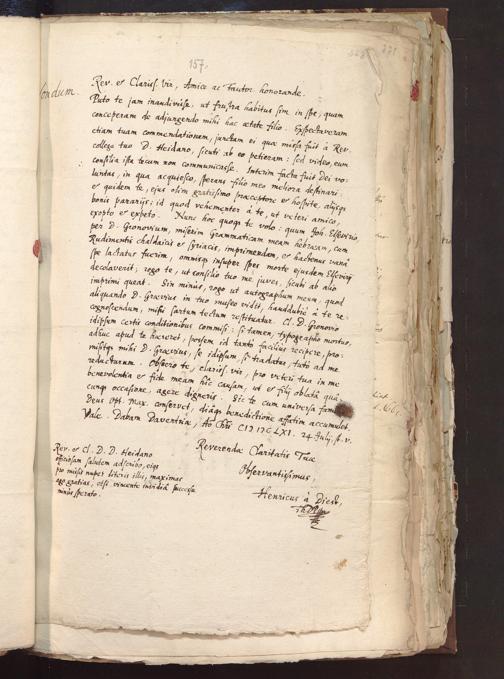 157.
Rev. et Clariss. Vir, Amice ac Fautor honorande.
Puto te jam inaudivisse, ut frustra habitus sim in spe, quam
conceperam de adjungendo mihi hac aetate filio. Expectaveram
etiam tuam commendationem, junctam ei quae missa fuit à Rev.
collega tuo D. Heidano, sicuti ab eo petieram: sed video, eum
consilia ista tecum non communicasse. Interim facta fuit Dei vo:
luntas, in qua acquiesco, sperans filio meo meliora destinari:
et quidem te, ejus olim gratissimo praeceptore et hospite, aliisque
bonis parariis: id quod vehementer à te, ut veteri amico,
expeto et expeto. Nunc hoc quoque te volo: quum Joh. Elsevirio,
per D. Gronovium, miserim Grammaticam meam hebraeam, cum
Rudimentis chaldaicis et syriacis, imprimendam, et hactenus vanâ
spe lactatus fuerim, omnisque insuper spes morte ejusdem Elsevirij
decolaverit; rogo te, ut consilio tuo me juves, sicubi ab alio
imprimi queat. Sin minus, rogo ut autographum meum, quod
aliquando D. Graevius in tuo museo vidit, haud dubiè à te re:
cognoscendum, mihi sartum tectum restituatur. Cl. D. Gronovio
idipsum certis conditionibus commisi: si tamen, typographo mortuo,
adhuc apud te haereret, possem id tantò facilius recipere, pro:
misitque mihi D. Graevius, se idipsum, si tradatur, tutò ad me
reducturum. Obsecro te, clariss. vir, pro veteri tua in me
benevolentia et fide meam hic causam, ut et filij oblatâ qua:
cunque occasione, agere digneris. Sic te cum universa familia
Deus Opt. Max. conservet, suaque benedictione affatim accumulet.
Vale. Dabam Daventriae, Ao Chr. CIƆ IƆC LXI. 24 Julij, st. v.
Reverendae Claritatis Tuae
Observantissimus,
Henricus à Diest,
Rev. et Cl. D. D. Heidano
officiosam salutem adscribo, eique
pro missis nuper literis illis, maximas
ago gratias, etsi vincente invidiâ successu
minus sperato.